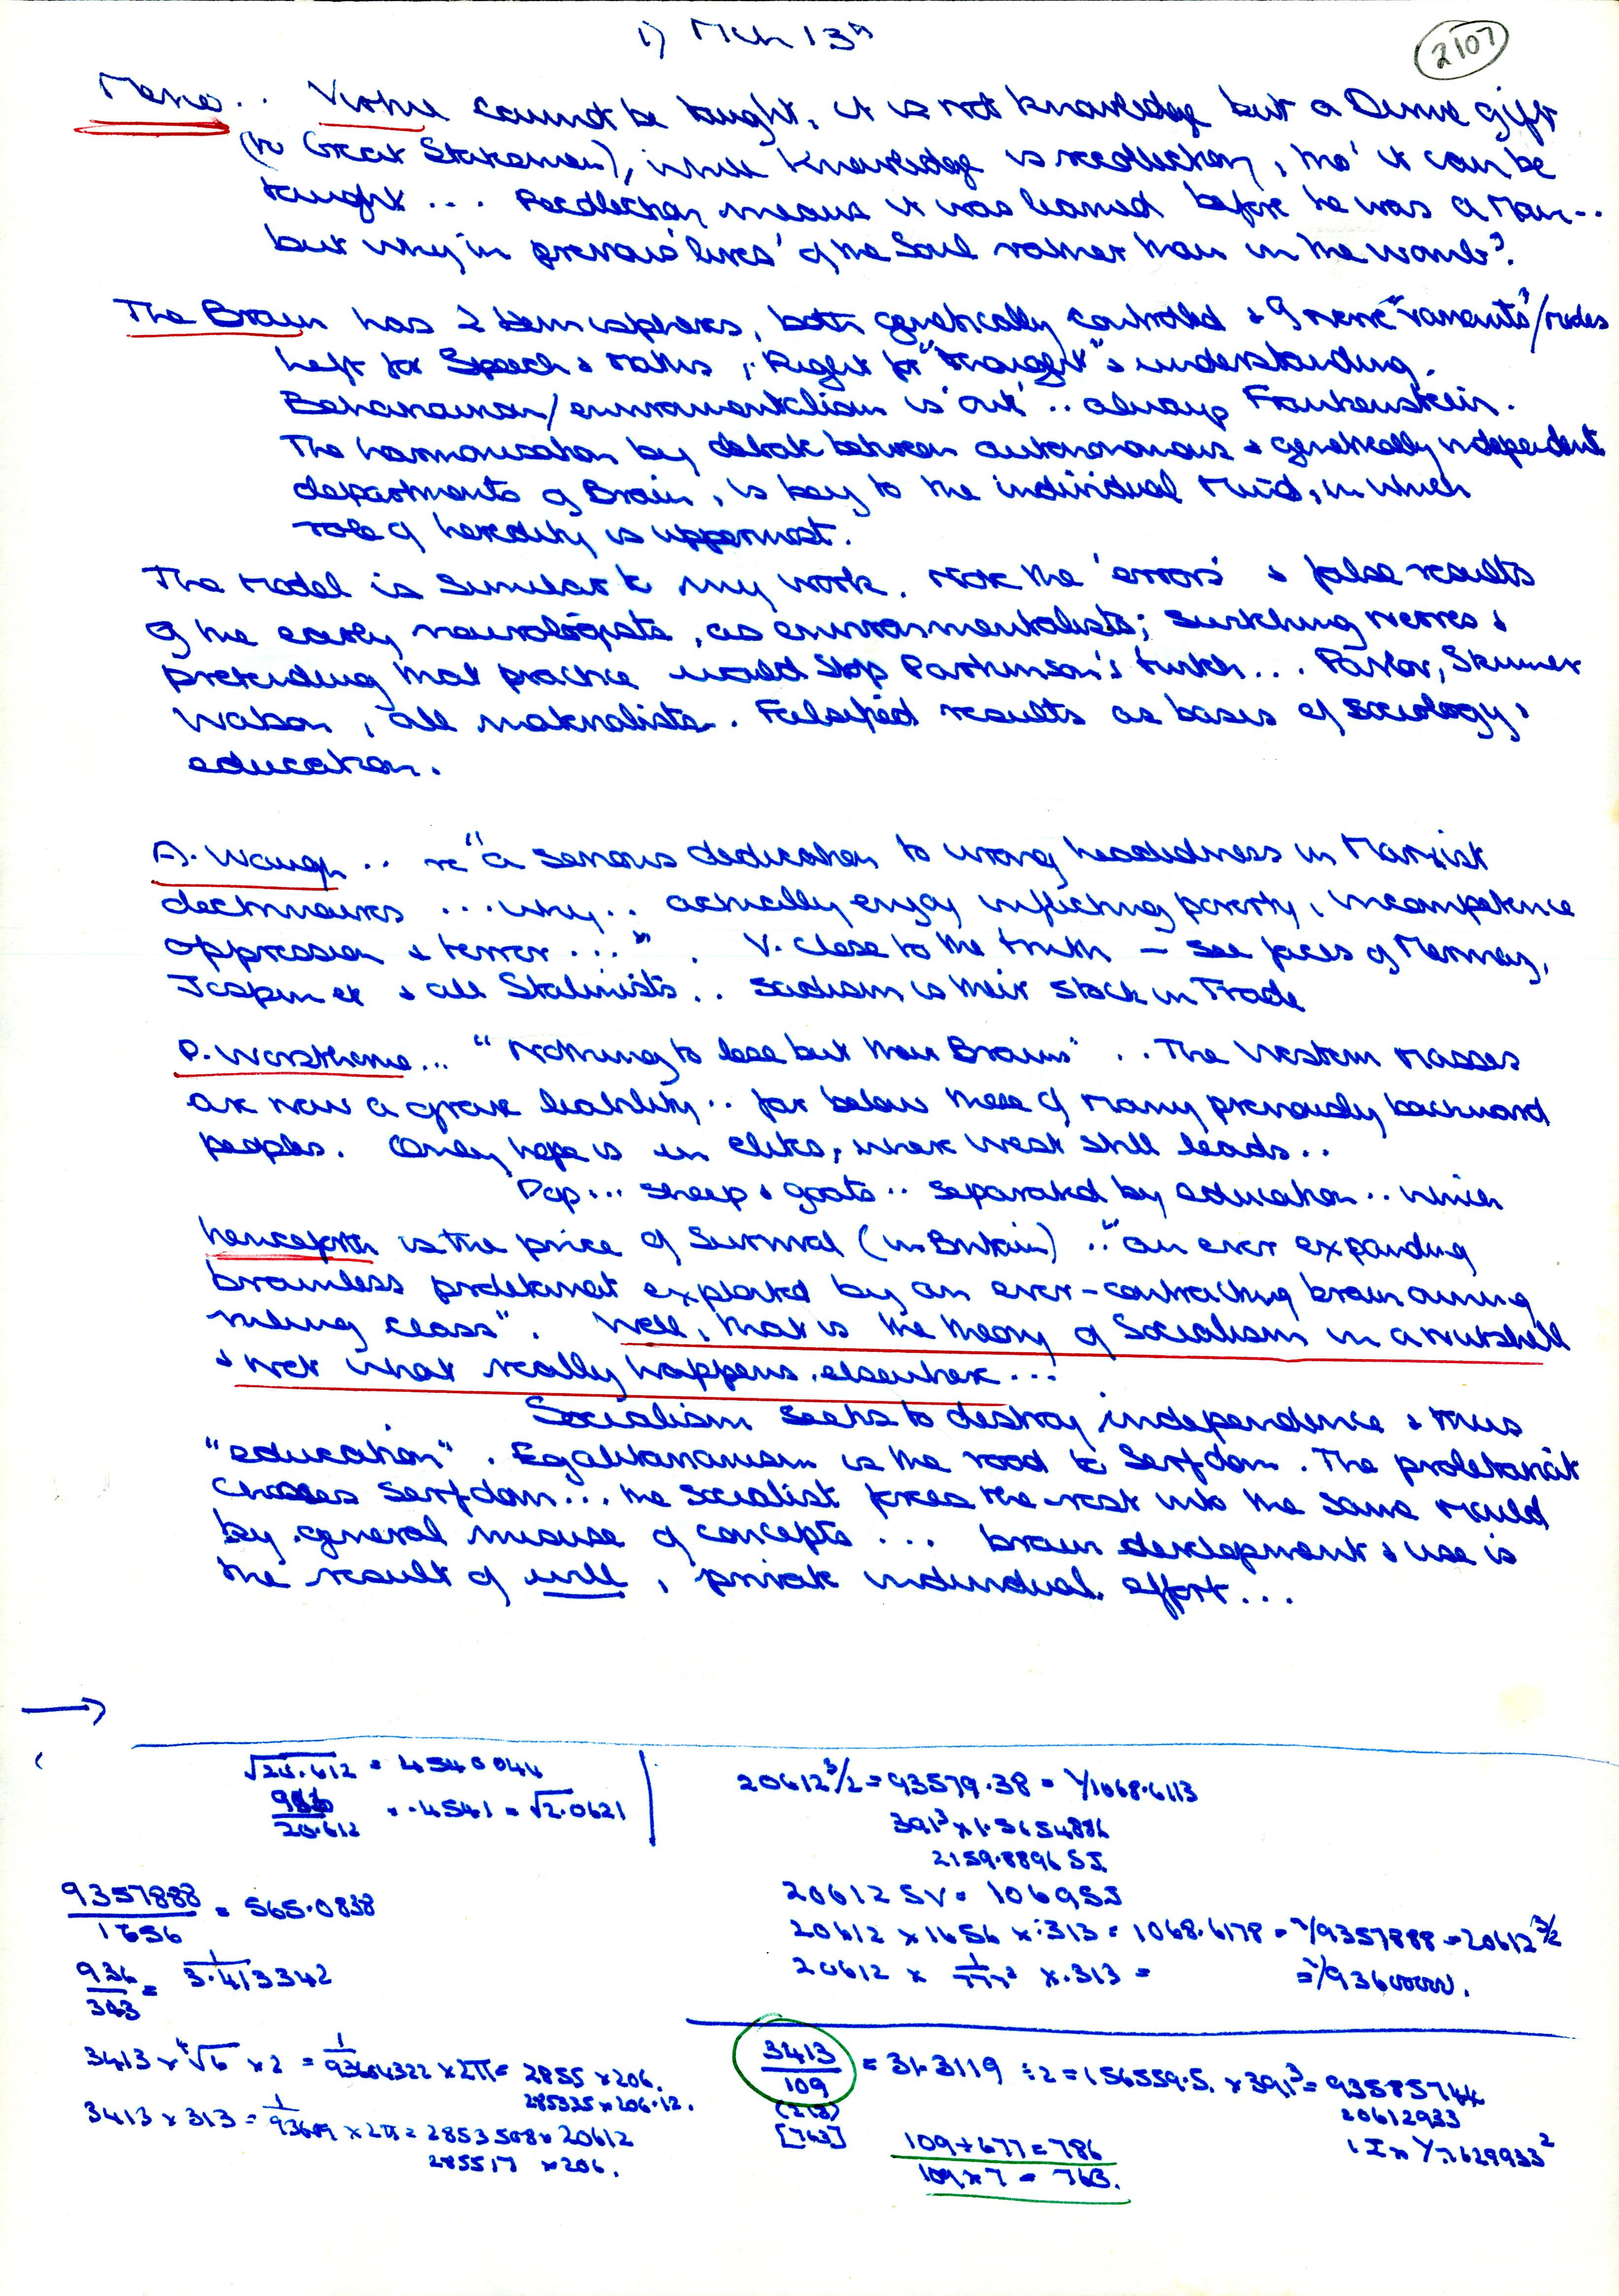 i) Mch 13th
2107
Meno.. Virtue cannot be taught, it is not knowledge but a Divine gift
(to Great Statesmen), while Knowledge is recollection, tho' it can be
taught... Recollection means it was learned before he was a Man..
but why in previous 'lives' of the Soul rather than in the womb?
The Brain has 2 hemispheres, both genetically controlled & 9 nerve "variants"/modes
Left for Speech & Maths, Right for "thought" & understanding.
Behaviourism/environmentalism is 'out'.. always Frankenstein.
The harmonisation by debate between autonomous & genetically independent
departments of Brain, is key to the individual Mind, in which
role of heredity is uppermost.
The Model is similar to my work. Note the 'errors' & false results
of the early neurologists, as environmentalists; switching nerves &
pretending that practice would stop Parkinson's twitch... Pavlov, Skinner
Watson, all materialists. Falsified results as bases of sociology &
education.
A. Waugh.. re "a serious dedication to wrong headedness in Marxist
doctrinaires ...why.. actually enjoy inflicting poverty, incompetence
oppression & terror...". V. close to the truth – see faces of
& all Stalinists.. Sadism is their Stock in Trade
P. Worsthorne... "Nothing to lose but their Brains".. The Western Masses
are now a grave liability.. far below those of many previously backward
peoples. Only hope is in elites, where West still leads..
Pop... sheep & goats.. separated by education.. which
henceforth is the price of Survival (in Britain).. "an ever expanding
brainless proletariat exploited by an ever-contracting brain owning
ruling class". Well, that is the theory of Socialism in a nutshell
& not what really happens, elsewhere...
Socialism seeks to destroy independence & thus
"education". Egalitarianism is the road to Serfdom. The proletariat
chooses serfdom... the socialist forces the rest into the same Mould
by general misuse of concepts... brain development & use is
the result of will, private individual effort...
√20.612 = 4540044
20.612 = .4541 = √2.0621
20612 3/2 = 93579.38 = 1/1068.6113
391³ x 1.5654886
2159.8896 SJ
20612 SV = 1069SJ
9357888/1656 = 565.0838
20612 x 1656 x .313 = 1068.6178 = 1/9357888 = 20612 3/2
936/343 = 1/3.413342
20612 x x .313 = = 1/9360000.
3413 x √6 x 2 = 1/93604322 x 2π = 2855 x 206.
285325 x 206.12.
3413 x 313 = 1/93609 x 2π = 2853508 x 20612
285517 x 206.
3413/109 = 31.3119 ÷ 2 = 156559.5. x 391³ = 93585744
(218)
20612933
[763]
109 + 677 = 786
109 x 7 = 763.